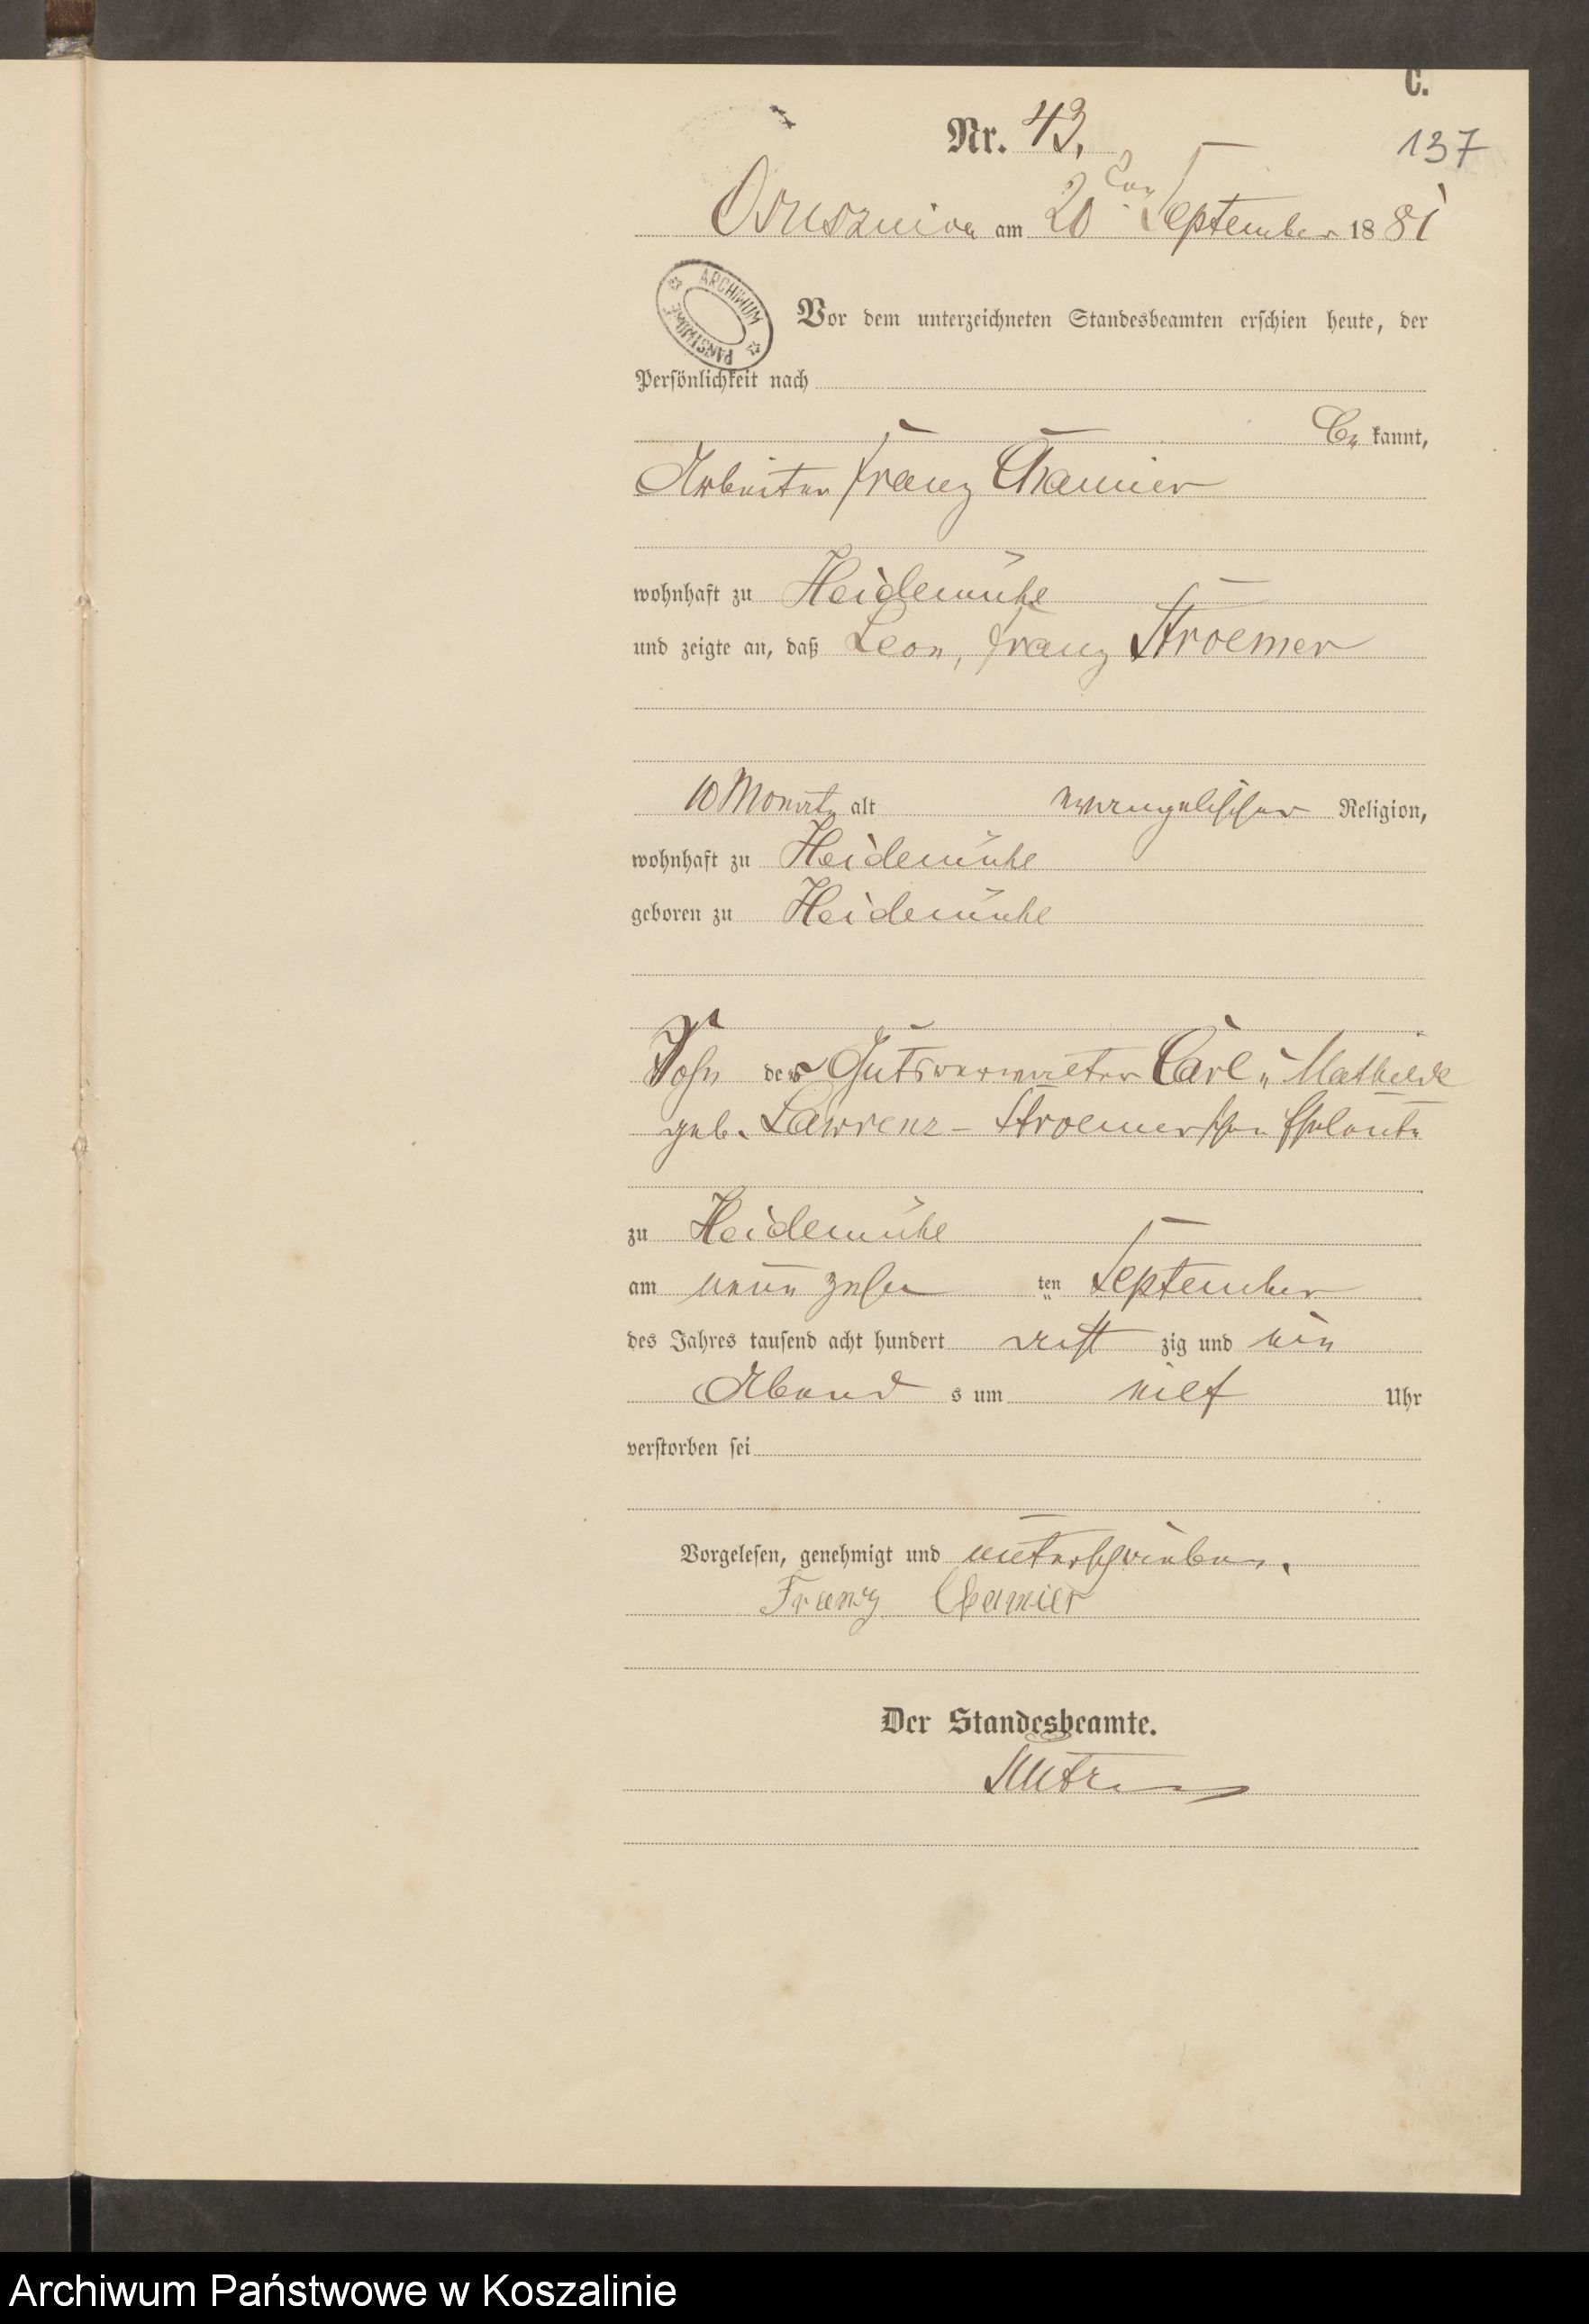 C.
Nr. 43.
137
Osusznica am 20ten September 1881
ARCHIWUM PAŃSTWOWE
Vor dem unterzeichneten Standesbeamten erschien heute, der
Persönlichkeit nach
be kannt,
Arbeiter Franz Chamier
wohnhaft zu Heidemühl
und zeigte an, daß Leon, Franz Stroemer
10 Monate alt evangelischer Religion,
wohnhaft zu Heidemühl
geboren zu Heidemühl
Sohn der Gutsverwalter Carl u Mathilde
geb. Lawrenz-Stroemerschen Eheleute
zu Heidemühl
am neun zehn ten September
des Jahres tausend acht hundert acht zig und ein
Abend s um elf Uhr
verstorben sei
Vorgelesen, genehmigt und unterschrieben.
Franz Chamier
Der Standesbeamte.
Archiwum Państwowe w Koszalinie